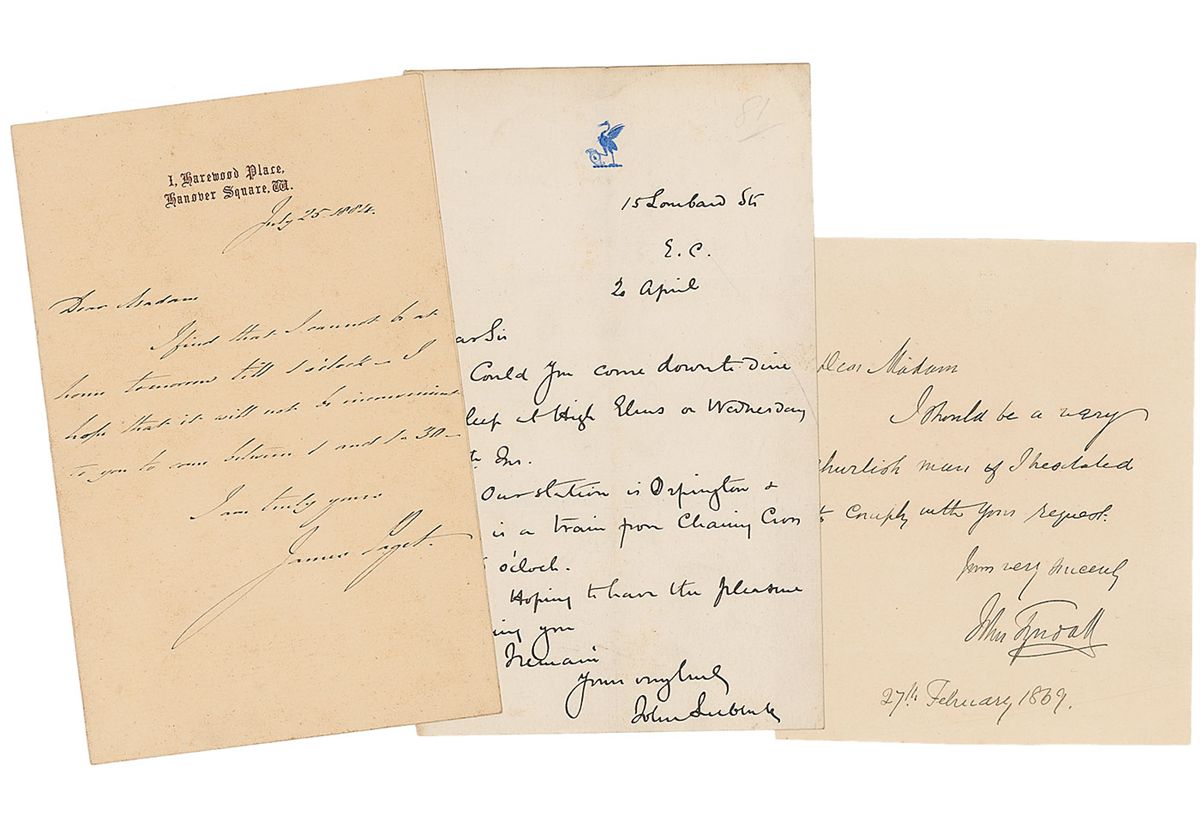 1, Harewood Place,
Hanover Square, W.
July 25 1884.
Dear Madam
I find that I cannot be at
home tomorrow till 1 o'clock – I
hope that it will not be inconvenient
to you to come between 1 and 1.30 –
I am truly yours
James Paget.
81
15 Lombard St
E.C.
2 April
ar Sir
Could you come down to dine
leep at High Elms on Wednesday
th Ins.
Our station is Orpington &
is a train from Charing Cross
o'clock.
Hoping to have the pleasure
ing you
I remain
Yours very truly
John Lubbock
Dear Madam
I should be a very
churlish man if I hesitated
to comply with your request.
Yours very sincerely
John Tyndall
27th February 1869.